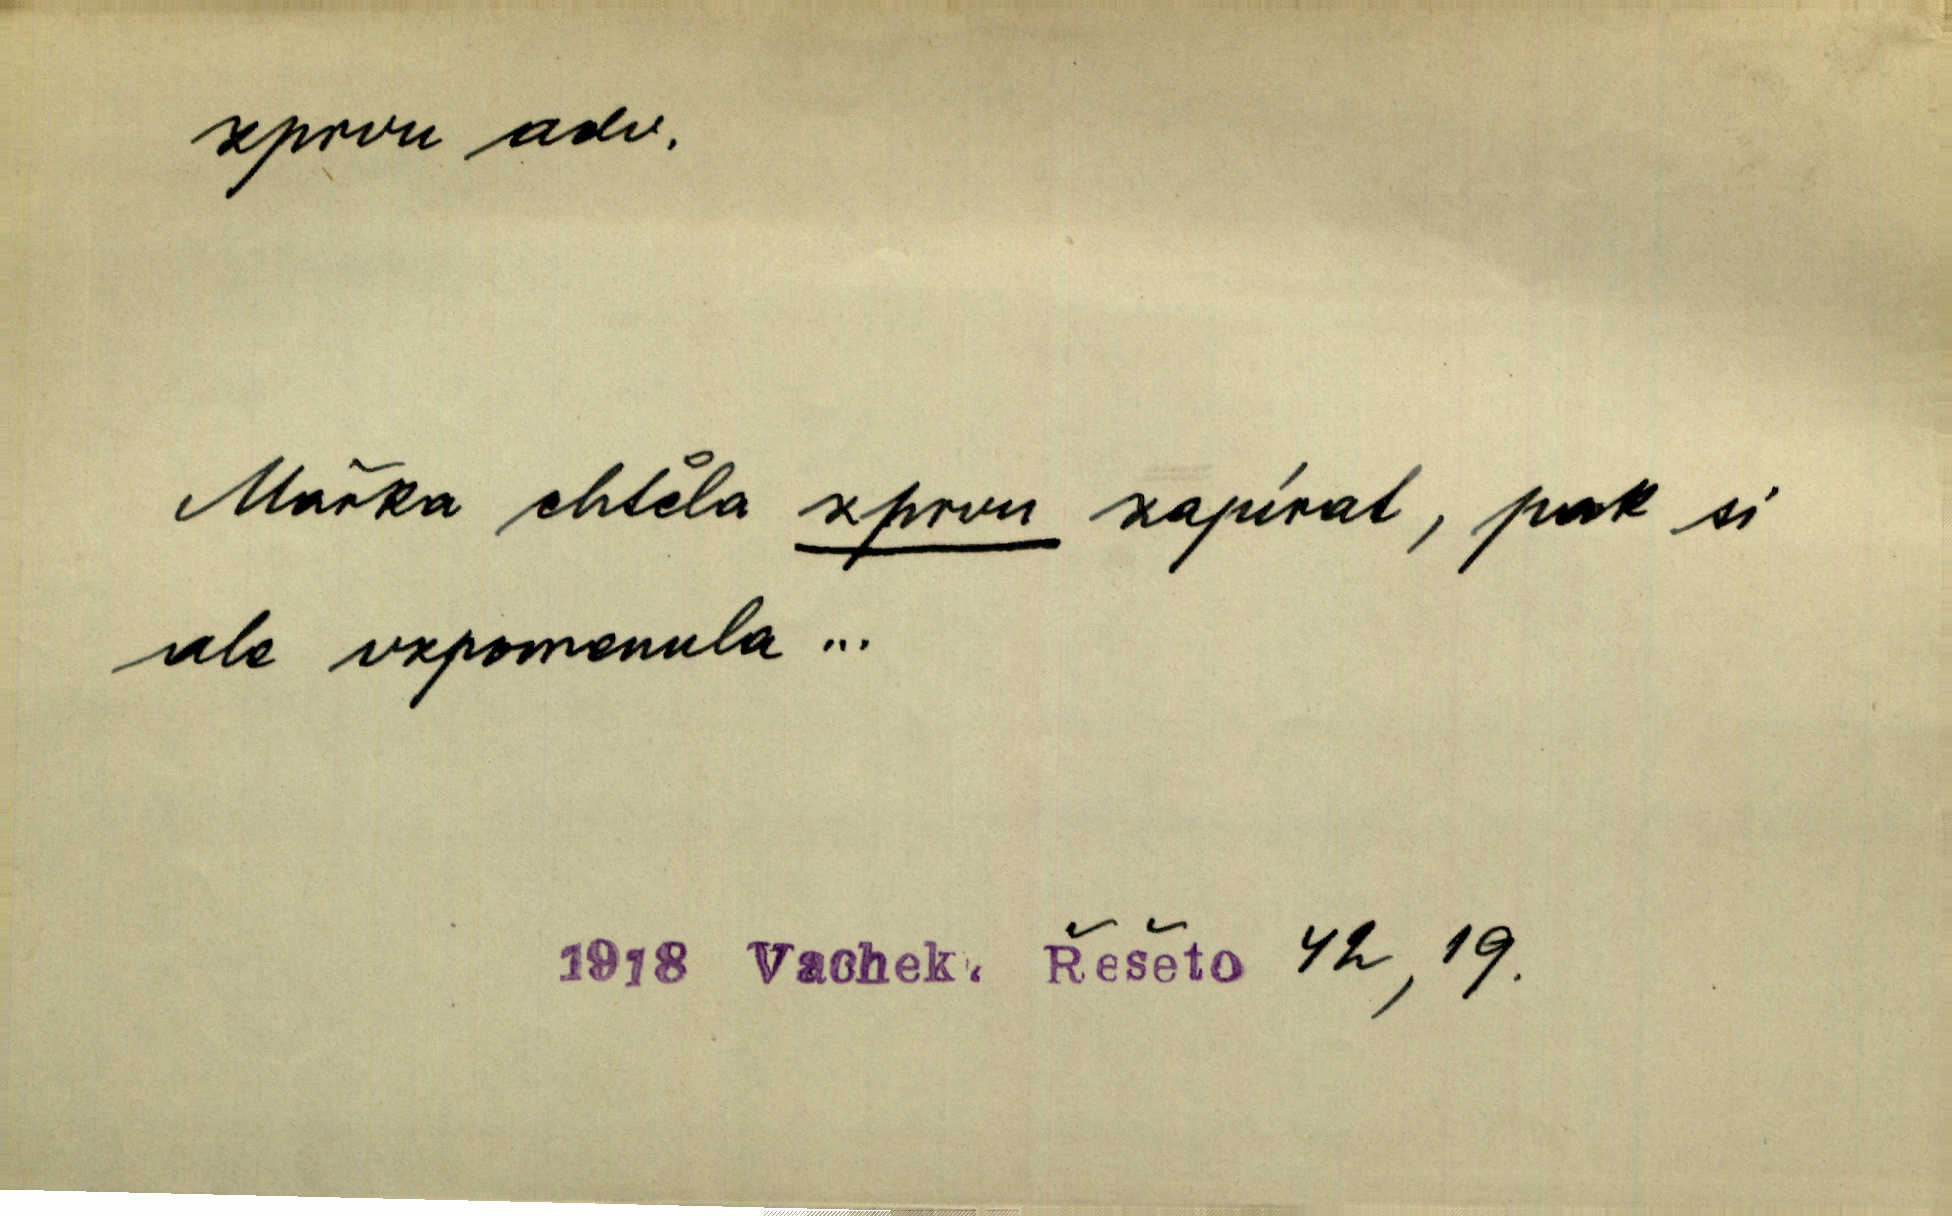 zprvu adv.
Mařka chtěla zprvu zapírat, pak si
ale vzpomenula ...
1918 Vachek. Řešeto 42, 19.